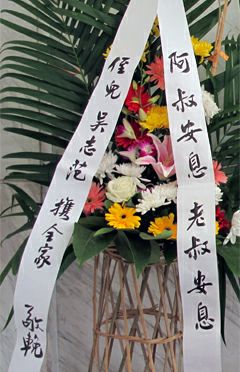 阿叔安息老叔安息
侄儿吴志范携全家敬輓